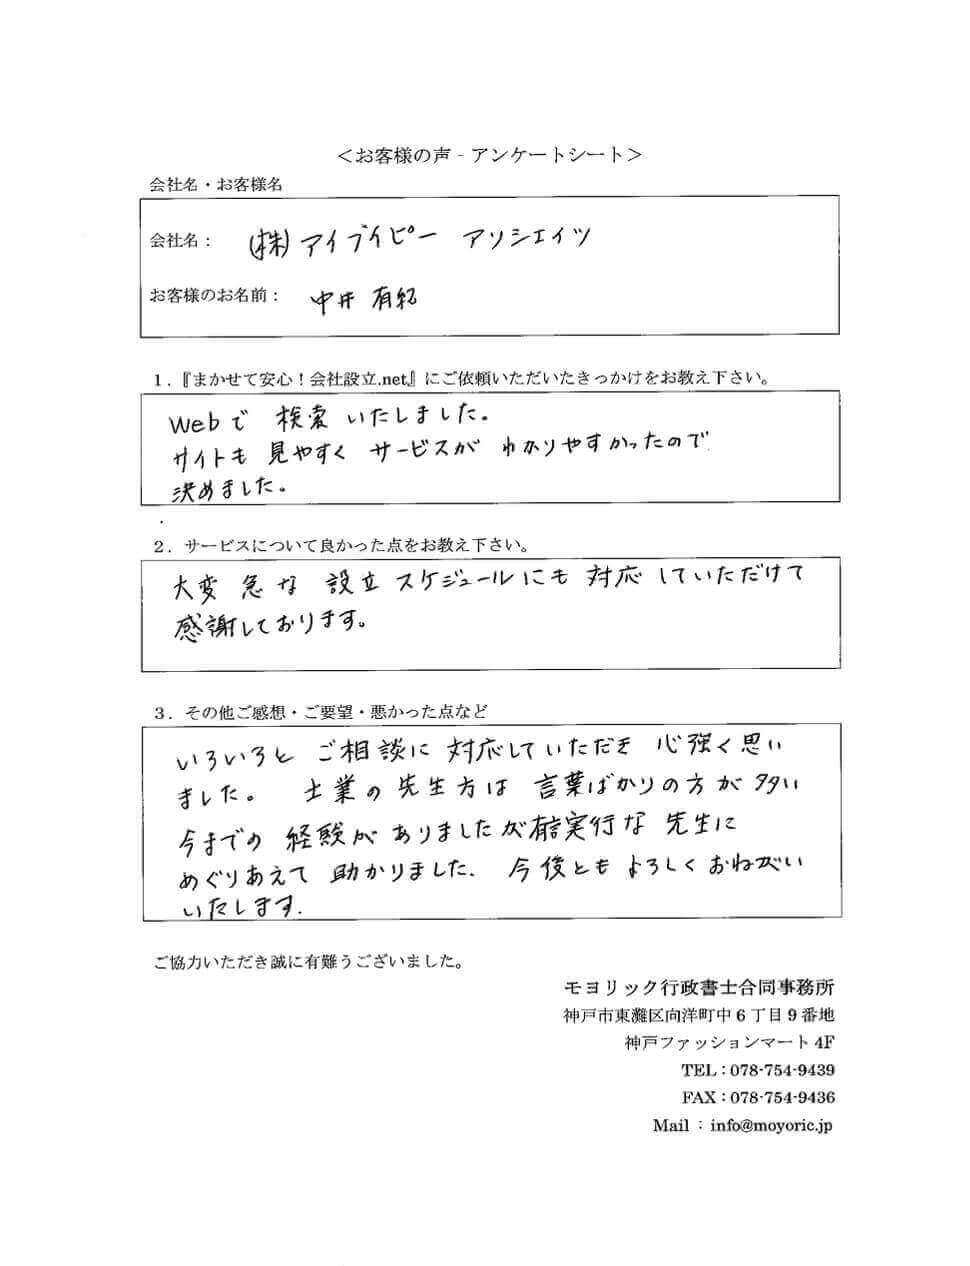 ＜お客様の声 - アンケートシート＞
会社名・お客様名
会社名： (株)アイブイピー アソシエイツ
お客様のお名前： 中井 有紀
1．『まかせて安心！会社設立.net』にご依頼いただいたきっかけをお教え下さい。
Webで 検索 いたしました。
サイトも 見やすく サービスが わかりやすかったので
決めました。
2．サービスについて良かった点をお教え下さい。
大変 急な 設立 スケジュールにも 対応 していただけて
感謝しております。
3．その他ご感想・ご要望・悪かった点など
いろいろと ご相談に 対応していただき 心強く思い
ました。 士業の 先生方は 言葉ばかりの方が 多い
今までの 経験が ありましたが 有言実行な 先生に
めぐりあえて 助かりました. 今後とも よろしく おねがい
いたします.
ご協力いただき誠に有難うございました。
モヨリック行政書士合同事務所
神戸市東灘区向洋町中6丁目9番地
神戸ファッションマート4F
TEL：078-754-9439
FAX：078-754-9436
Mail ： info@moyoric.jp